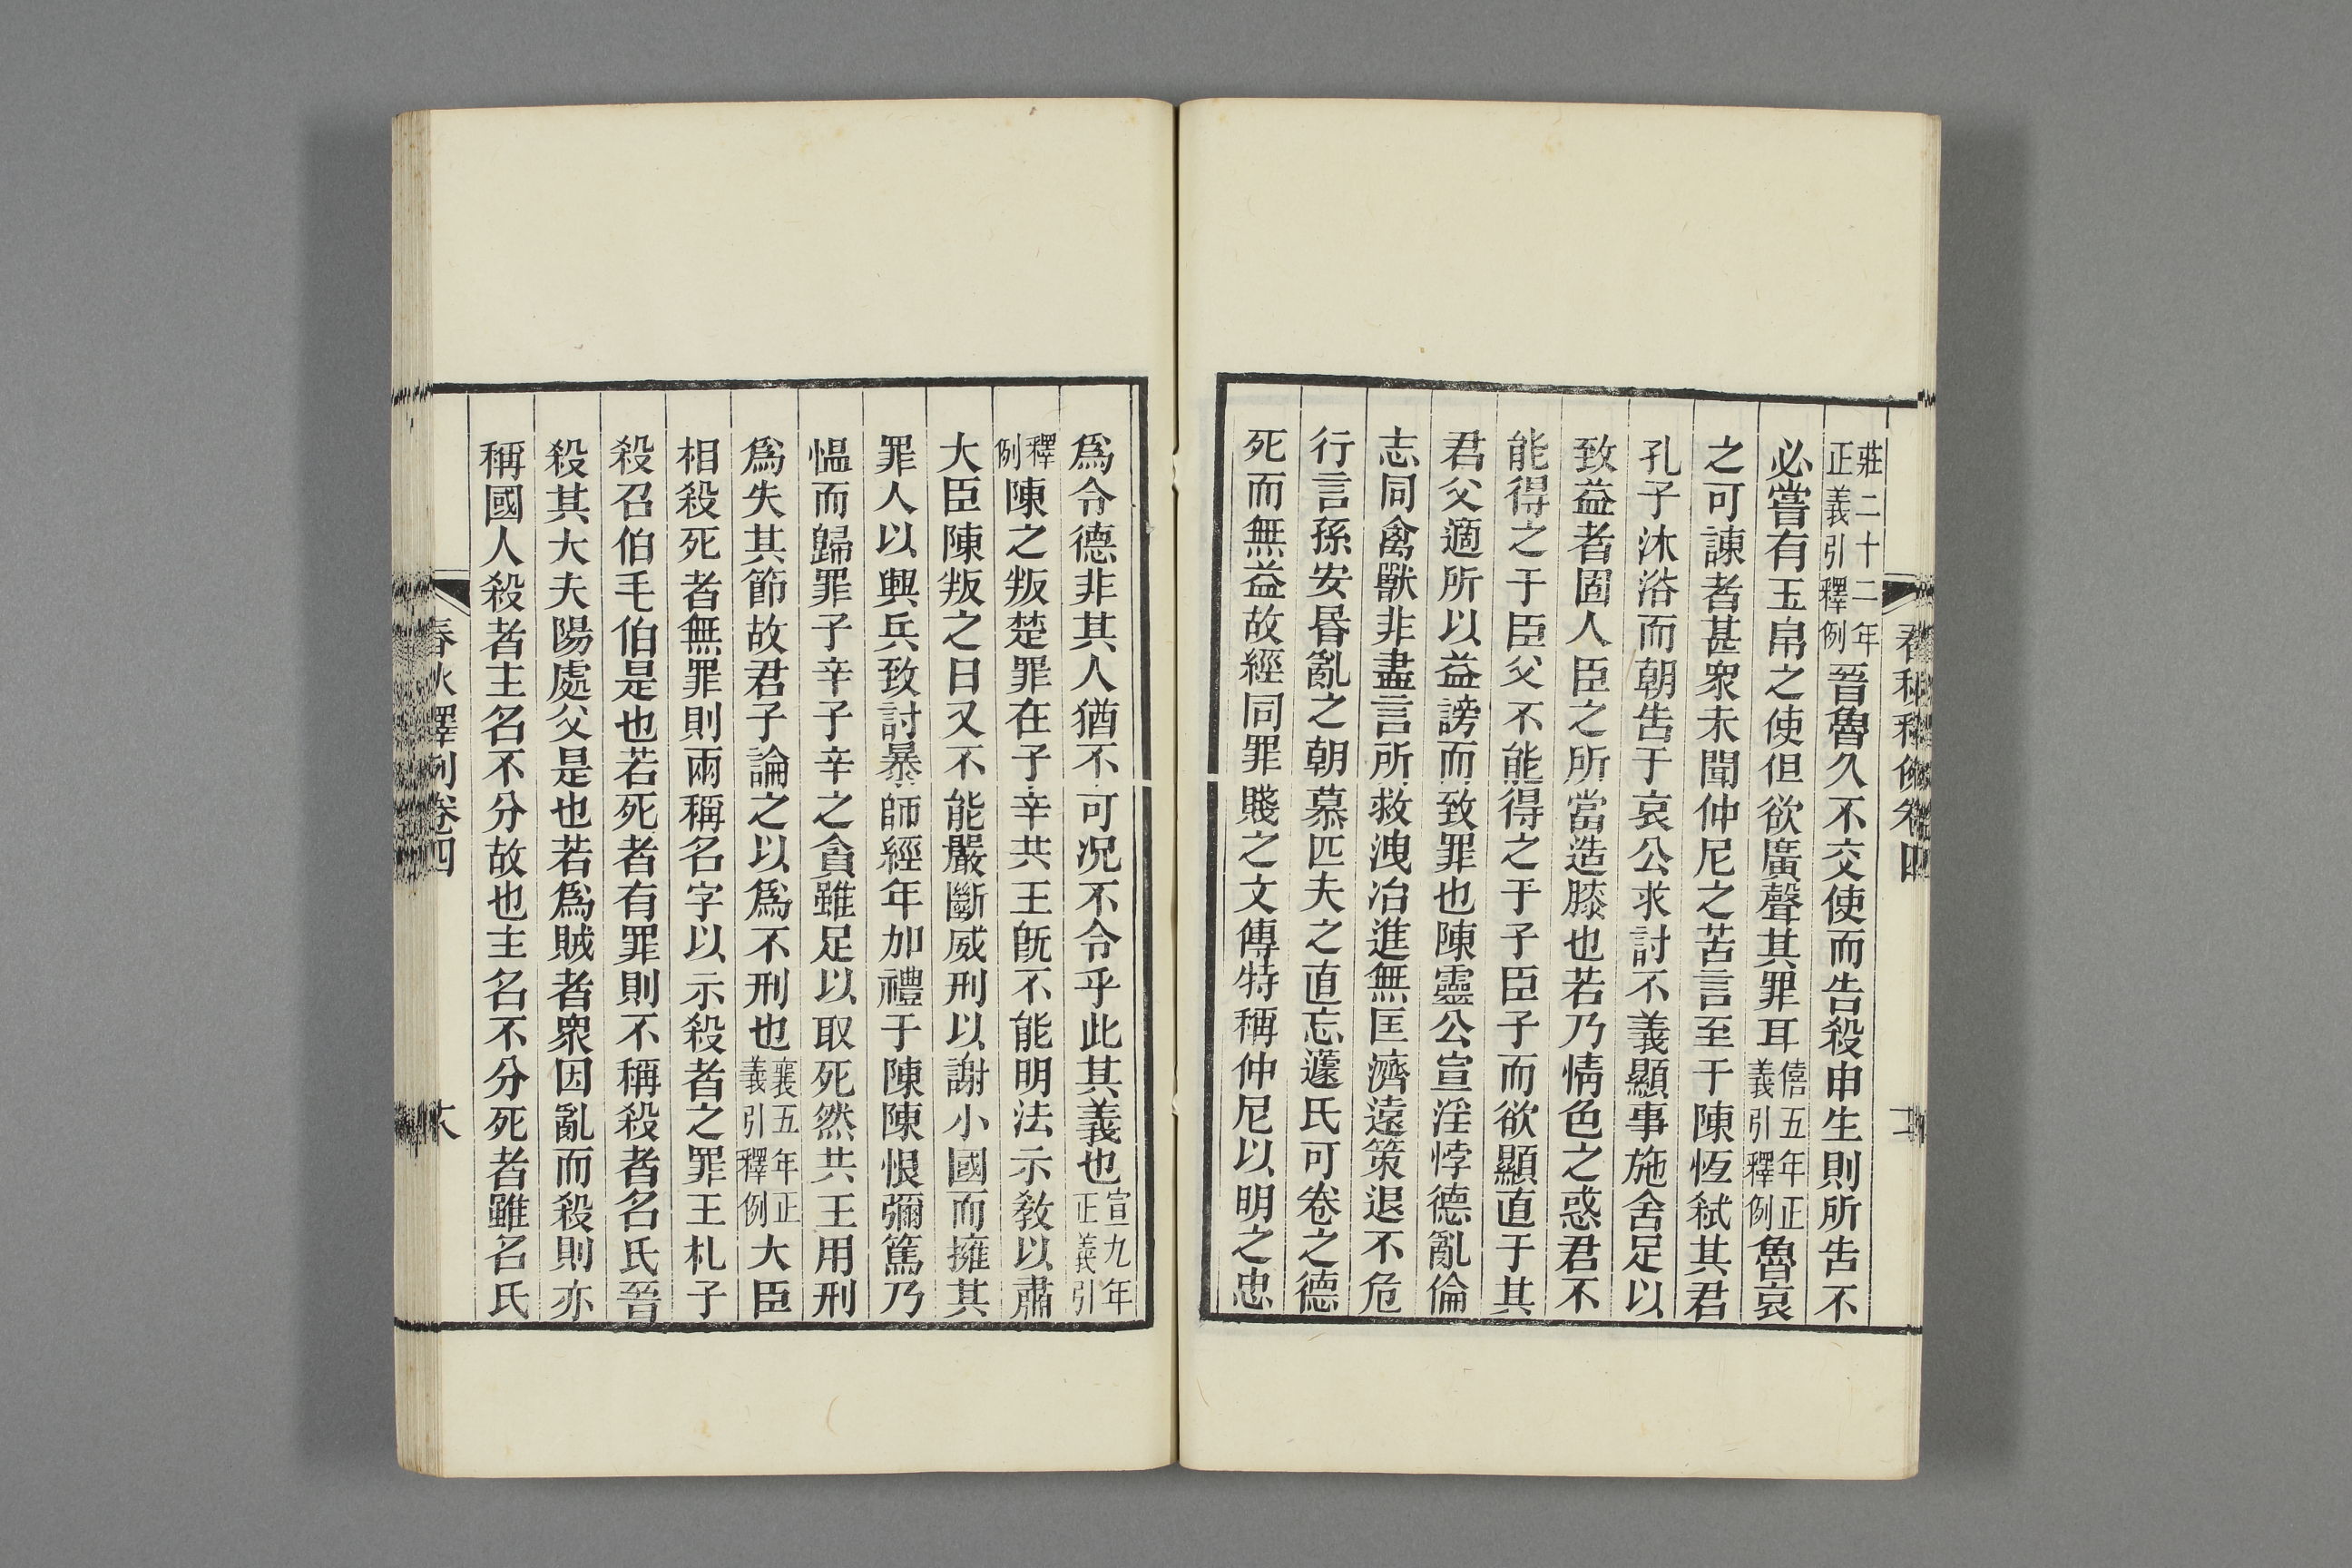 莊二十二年正義引釋例晉魯久不交使而告殺申生則所告不
必嘗有玉帛之使但欲廣聲其罪耳僖五年正義引釋例魯哀
之可諫者甚衆未聞仲尼之苦言至于陳恆弑其君
孔子沐浴而朝告于哀公求討不義顯事施舍足以
致益者固人臣之所當造膝也若乃情色之惑君不
能得之于臣父不能得之于子臣子而欲顯直于其
君父適所以益謗而致罪也陳靈公宣淫悖德亂倫
志同禽獸非盡言所救洩冶進無匡濟遠策退不危
行言孫安昬亂之朝慕匹夫之直忘蘧氏可卷之德
死而無益故經同罪賤之文傳特稱仲尼以明之忠
爲令德非其人猶不可况不令乎此其義也宣九年正義引
釋例陳之叛楚罪在子辛共王旣不能明法示敎以肅
大臣陳叛之日又不能嚴斷威刑以謝小國而擁其
罪人以興兵致討暴師經年加禮于陳陳恨彌篤乃
愠而歸罪子辛子辛之貪雖足以取死然共王用刑
爲失其節故君子論之以爲不刑也襄五年正義引釋例大臣
相殺死者無罪則兩稱名字以示殺者之罪王札子
殺召伯毛伯是也若死者有罪則不稱殺者名氏晉
殺其大夫陽處父是也若爲賊者衆因亂而殺則亦
稱國人殺者主名不分故也主名不分死者雖名氏
春秋釋例卷四